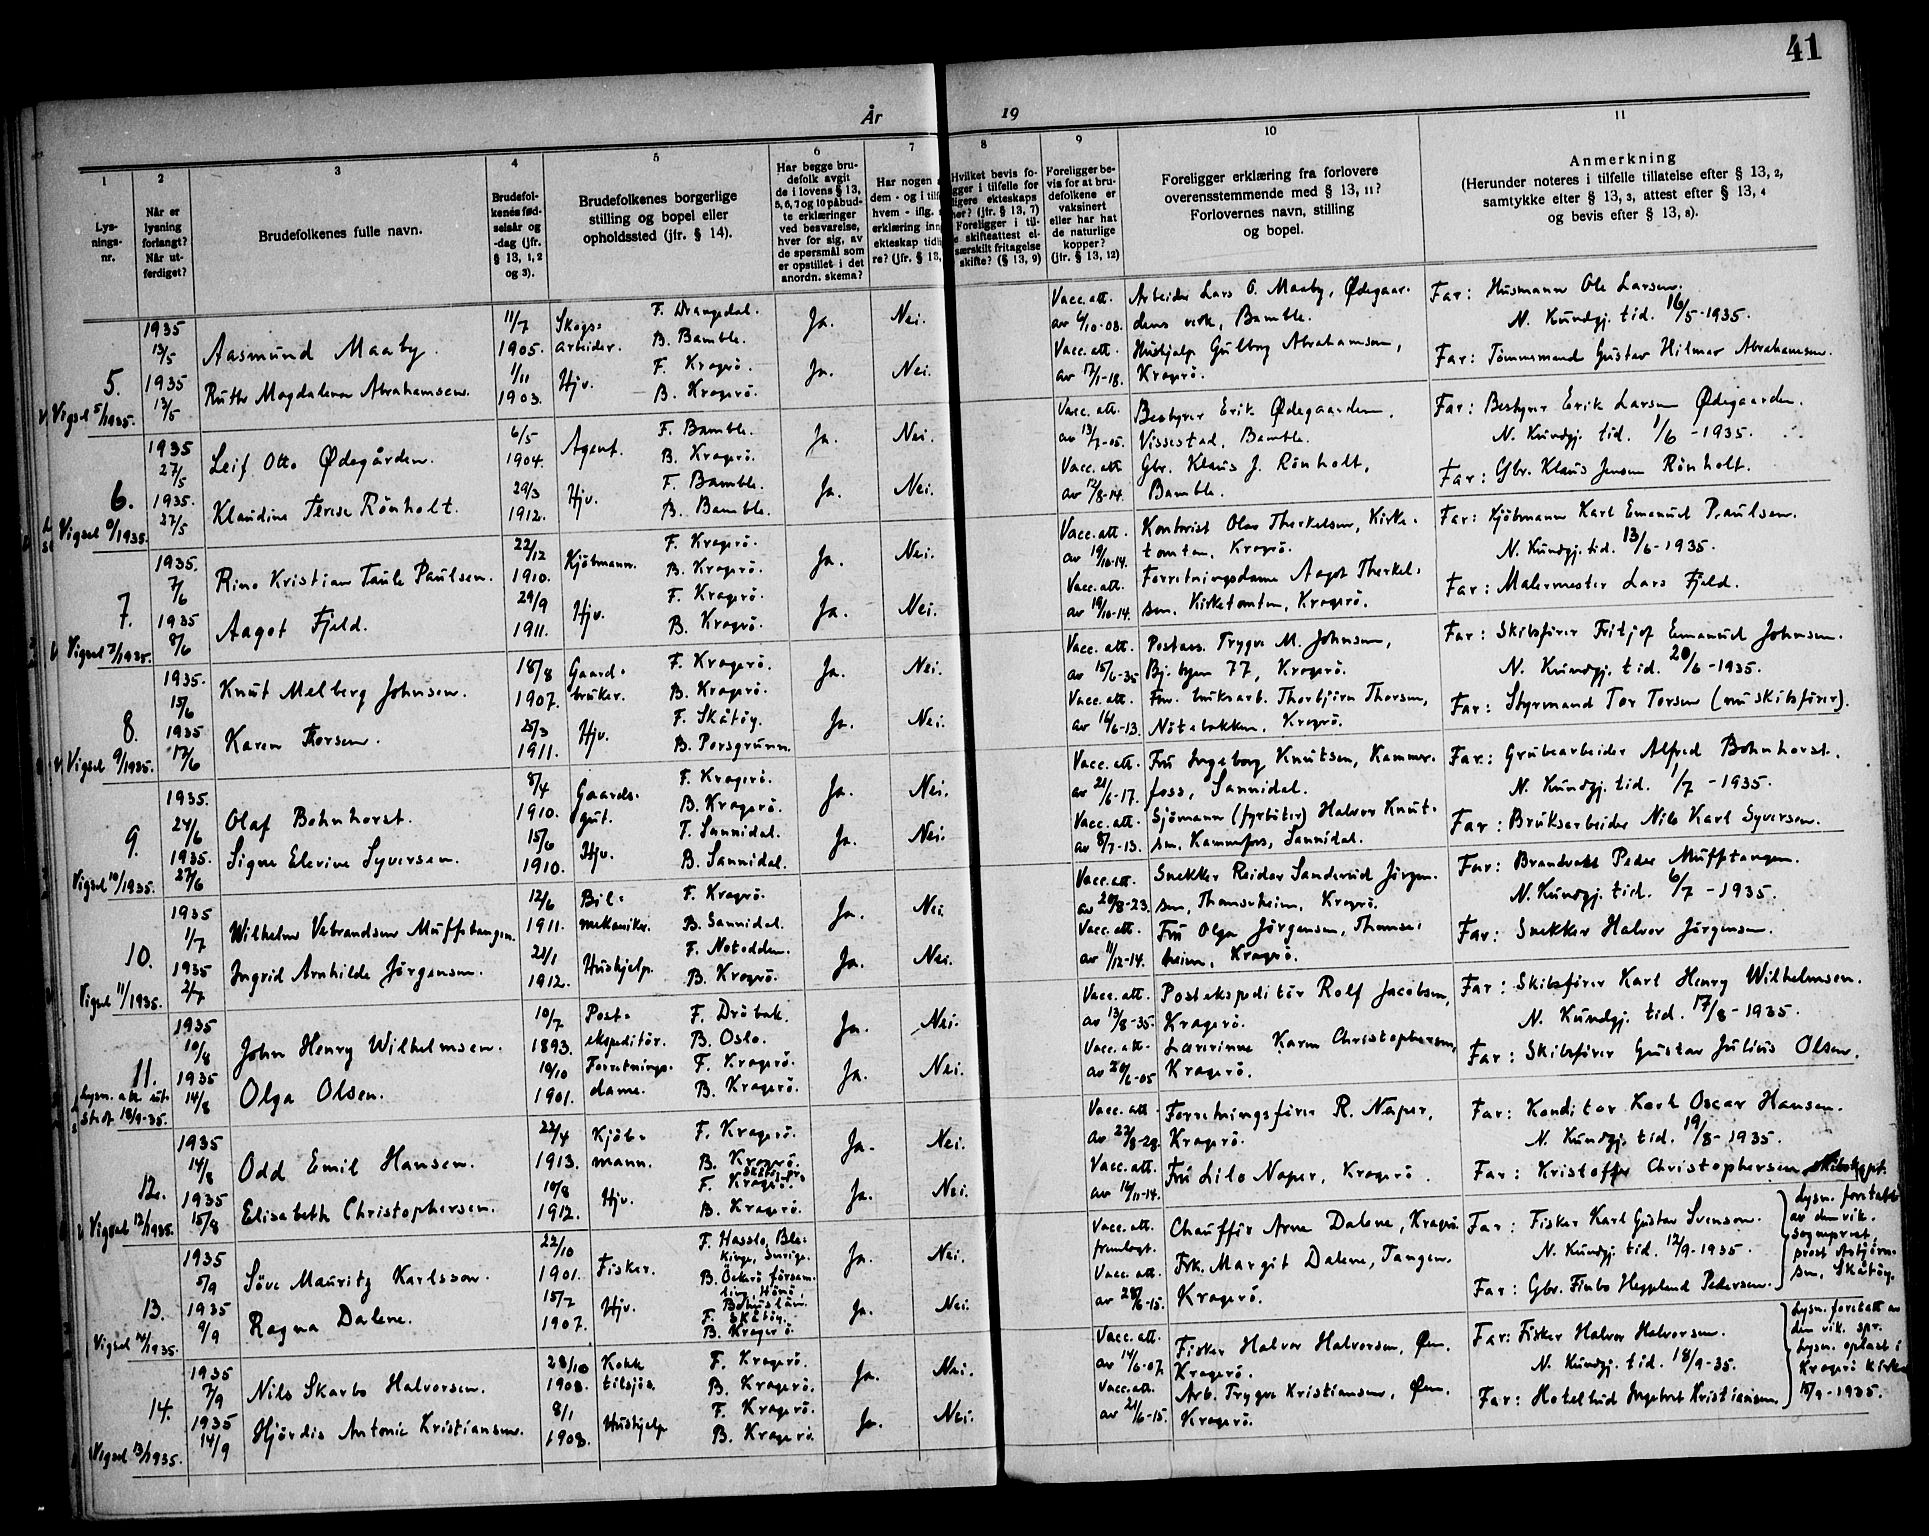 41
År 19
1 2 3 4 5 6 7 8 9 10 11
Lysnings-nr.
Når er lysning forlangt? Når utferdiget?
Brudefolkenes fulle navn.
Brudefolkenes fødselsår og -dag (jfr. § 13, 1, 2 og 3).
Brudefolkenes borgerlige stilling og bopel eller opholdssted (jfr. § 14).
Har begge brudefolk avgit de i lovens § 13, 5, 6, 7 og 10 påbudte erklæringer ved besvarelse, hver for sig, av de spørsmål som er opstillet i det anordn. skema?
Har nogen
dem - og i tilf
hvem - iflg.
erklæring inn
ekteskap tidl
re? (jfr. § 13,
Hvilket bevis fo-
gger i tilfelle for
ligere ekteskaps
her? (jfr. § 13, 7)
Foreligger i til-
e skifteattest el-
særskilt fritagelse
skifte? (§ 13, 9)
Foreligger bevis for at brudefolkene er vaksinert eller har hat de naturlige kopper? (jfr. § 13, 12)
Foreligger erklæring fra forlovere overensstemmende med § 13, 11? Forlovernes navn, stilling og bopel.
Anmerkning
(Herunder noteres i tilfelle tillatelse efter § 13, 2, samtykke efter § 13, 3, attest efter § 13, 4 og bevis efter § 13, 8).
5. Vigsel 5/1935.
1935 13/5 Aasmund Maaby. 11/7 1905. Skogsarbeider. F. Drangedal. B. Bamble. Ja. Nei. Vacc. att. av 6/10-08. Arbeider Lars O. Maaby, Ødegaardens verk, Bamble. Far: Husmann Ole Larsen. N. Kundgj. tid. 16/5-1935.
1935 13/5 Ruth Magdalena Abrahamsen. 1/11 1903. Hjv. F. Kragerö. B. Kragerö. Ja. Nei. Vacc. att. av 17/1-18. Hushjelp Gulborg Abrahamsen, Kragerö. Far: Tömmermand Gustav Hilmar Abrahamsen.
6. Vigsel 6/1935.
1935 27/5 Leif Otto Ødegården. 6/5 1904. Agent. F. Bamble. B. Kragerö. Ja. Nei. Vacc. att. av 13/7-05. Bestyrer Erik Ødegaarden, Vissestad, Bamble. Far: Bestyrer Erik Larsen Ødegaarden. N. Kundgj. tid. 1/6-1935.
1935. 27/5 Klaudine Terese Rönholt. 29/3 1912. Hjv. F. Bamble. B. Bamble. Ja. Nei. Vacc. att. av 12/8-14. Gbr. Klaus J. Rönholt, Bamble. Far: Gbr. Klaus Jensen Rönholt.
7. Vigsel 7/1935.
1935. 7/6 Rino Kristian Taule Paulsen. 22/12 1910. Kjöbmann. F. Kragerö. B. Kragerö. Ja. Nei. Vacc. att. av 19/10-14. Kontorist Olav Therkelsen, Kirketomten, Kragerö. Far: Kjöbmann Karl Emanuel Paulsen. N. Kundgj. tid. 13/6-1935.
1935 8/6 Aagot Fjeld. 29/9 1911. Hjv. F. Kragerö. B. Kragerö. Ja. Nei. Vacc. att. av 19/10-14. Forretningsdame Aagot Therkelsen, Kirketomten, Kragerö. Far: Malermester Lars Fjeld.
8. Vigsel 9/1935.
1935. 15/6 Knut Melberg Johnsen. 18/8 1907. Gaardbruker. F. Kragerö. B. Kragerö. Ja. Nei. Vacc. att. av 15/6-35 Postass. Trygve M. Johnsen, Bj. bgen 77, Kragerö. Far: Skibsförer Fritjof Emanuel Johnsen. N. Kundgj. tid. 20/6-1935.
1935 17/6 Karen Thorsen. 25/3 1911. Hjv. F. Skåtöy. B. Porsgrunn. Ja. Nei. Vacc. att. av 14/6-13. Thorbjörn Thorsen, Kragerö. Far: Styrmand Tor Torsen (nu skibsförer).
9. Vigsel 10/1935.
1935. 24/6 Olaf Bohnhorst. 8/4 1910. Gaardsgut. F. Kragerö. B. Kragerö. Ja. Nei. Vacc. att. av 21/6-17. Fru Ingeborg Knutsen, Kammerfoss, Sannidal. Far: Grubearbeider Alfred Bohnhorst. N. Kundgj. tid. 1/7-1935.
1935. 27/6 Signe Elevine Syversen. 15/6 1910. Hjv. F. Sannidal. B. Sannidal. Ja. Nei. Vacc. att. av 8/7-13. Sjömann (fyrböter) Halvor Knutsen, Kammerfoss, Sannidal. Far: Bruksarbeider Nils Karl Syversen.
10. Vigsel 11/1935.
1935 1/7 Wilhelm Mufftangen. 12/6 1911. Bilmekaniker. F. Kragerö. B. Sannidal. Ja. Nei. Vacc. att. av 20/8-23. Snekker Reidar Sanderud Jörgensen, Thomsesheim, Kragerö. Far: Brandvakt Peder Mufftangen. N. Kundgj. tid. 6/7-1935.
1935 2/7 Ingrid Arnhilde Jörgensen. 21/1 1912. Hushjelp. F. Notodden. B. Kragerö. Ja. Nei. Vacc. att. av 11/12-14. Fru Olga Jörgensen, Thomsesheim, Kragerö. Far: Snekker Halvor Jörgensen.
11. Lysn. att. utstedt 18/9-35.
1935 10/8 John Henry Wilhelmsen. 10/7 1893. Postekspeditör. F. Dröbak. B. Oslo. Ja. Nei. Vacc. att. av 13/8-35. Postekspeditör Rolf Jacobsen, Kragerö. Far: Skibsförer Karl Henry Wilhelmsen. N. Kundgj. tid. 17/8-1935.
1935 14/8 Olga Olsen. 10/10 1901. Forretningsdame. F. Kragerö. B. Kragerö. Ja. Nei. Vacc. att. av 20/6-05 Lærerinne Karen Christophersen, Kragerö. Far: Skibsförer Gustav Julius Olsen.
12. Vigsel 12/1935.
1935 14/8 Odd Emil Hansen. 22/4 1913. Kjöbmann. F. Kragerö. B. Kragerö. Ja. Nei. Vacc. att. av 22/8-28. Forretningsförer R. Naper, Kragerö. Far: Konditor Karl Oscar Hansen. N. Kundgj. tid. 19/8-1935.
1935 15/8 Elisabeth Christophersen. 10/8 1912. Hjv. F. Kragerö. B. Kragerö. Ja. Nei. Vacc. att. av 16/11-14. Fru Lilo Naper, Kragerö. Far: Kristoffer Christophersen, skibskapt.
13. Vigsel 14/1935.
1935 5/9 Söve Mauritz Karlsson. 22/10 1901. Fisker. F. Hasslo, Blekinge, Sverige. B. Öckerö församling, Hönö, Bohuslän. Ja. Nei. Vacc. att. fremlagt. Chaufför Arne Dalene, Kragerö. Far: Fisker Karl Gustav Svenson. N. Kundgj. tid. 12/9-1935.
1935 9/9 Ragna Dalene. 15/7 1907. Hjv. F. Skåtöy. B. Kragerö. Ja. Nei. Vacc. att. av 28/6-15. Frk. Margit Dalene, Tangen, Kragerö. Far: Gbr. Finbo Heglund Pedersen.
Lysn. foretatt av den vik. sogneprest, prost Asbjörnsen, Skåtöy.
14. Vigsel 13/1935.
1935 7/9 Nils Skarbo Halvorsen. 28/10 1908. Kokk tilsjös. F. Kragerö. B. Kragerö. Ja. Nei. Vacc. att. av 14/6-07. Fisker Halvor Halvorsen, Öen, Kragerö. Far: Fisker Halvor Halvorsen. N. Kundgj. tid. 18/9-35.
1935 14/9 Hjördis Antonie Kristiansen. 8/1 1908. Hushjelp F. Kragerö. B. Kragerö. Ja. Nei. Vacc. att. av 21/6-15. Arb. Trygve Kristiansen, Öen, Kragerö. Far: Hotelbud Ingebret Kristiansen.
Lysn. foretatt av den vik. spr. Lysn. oplest i Kragerö kirke 15/9-1935.